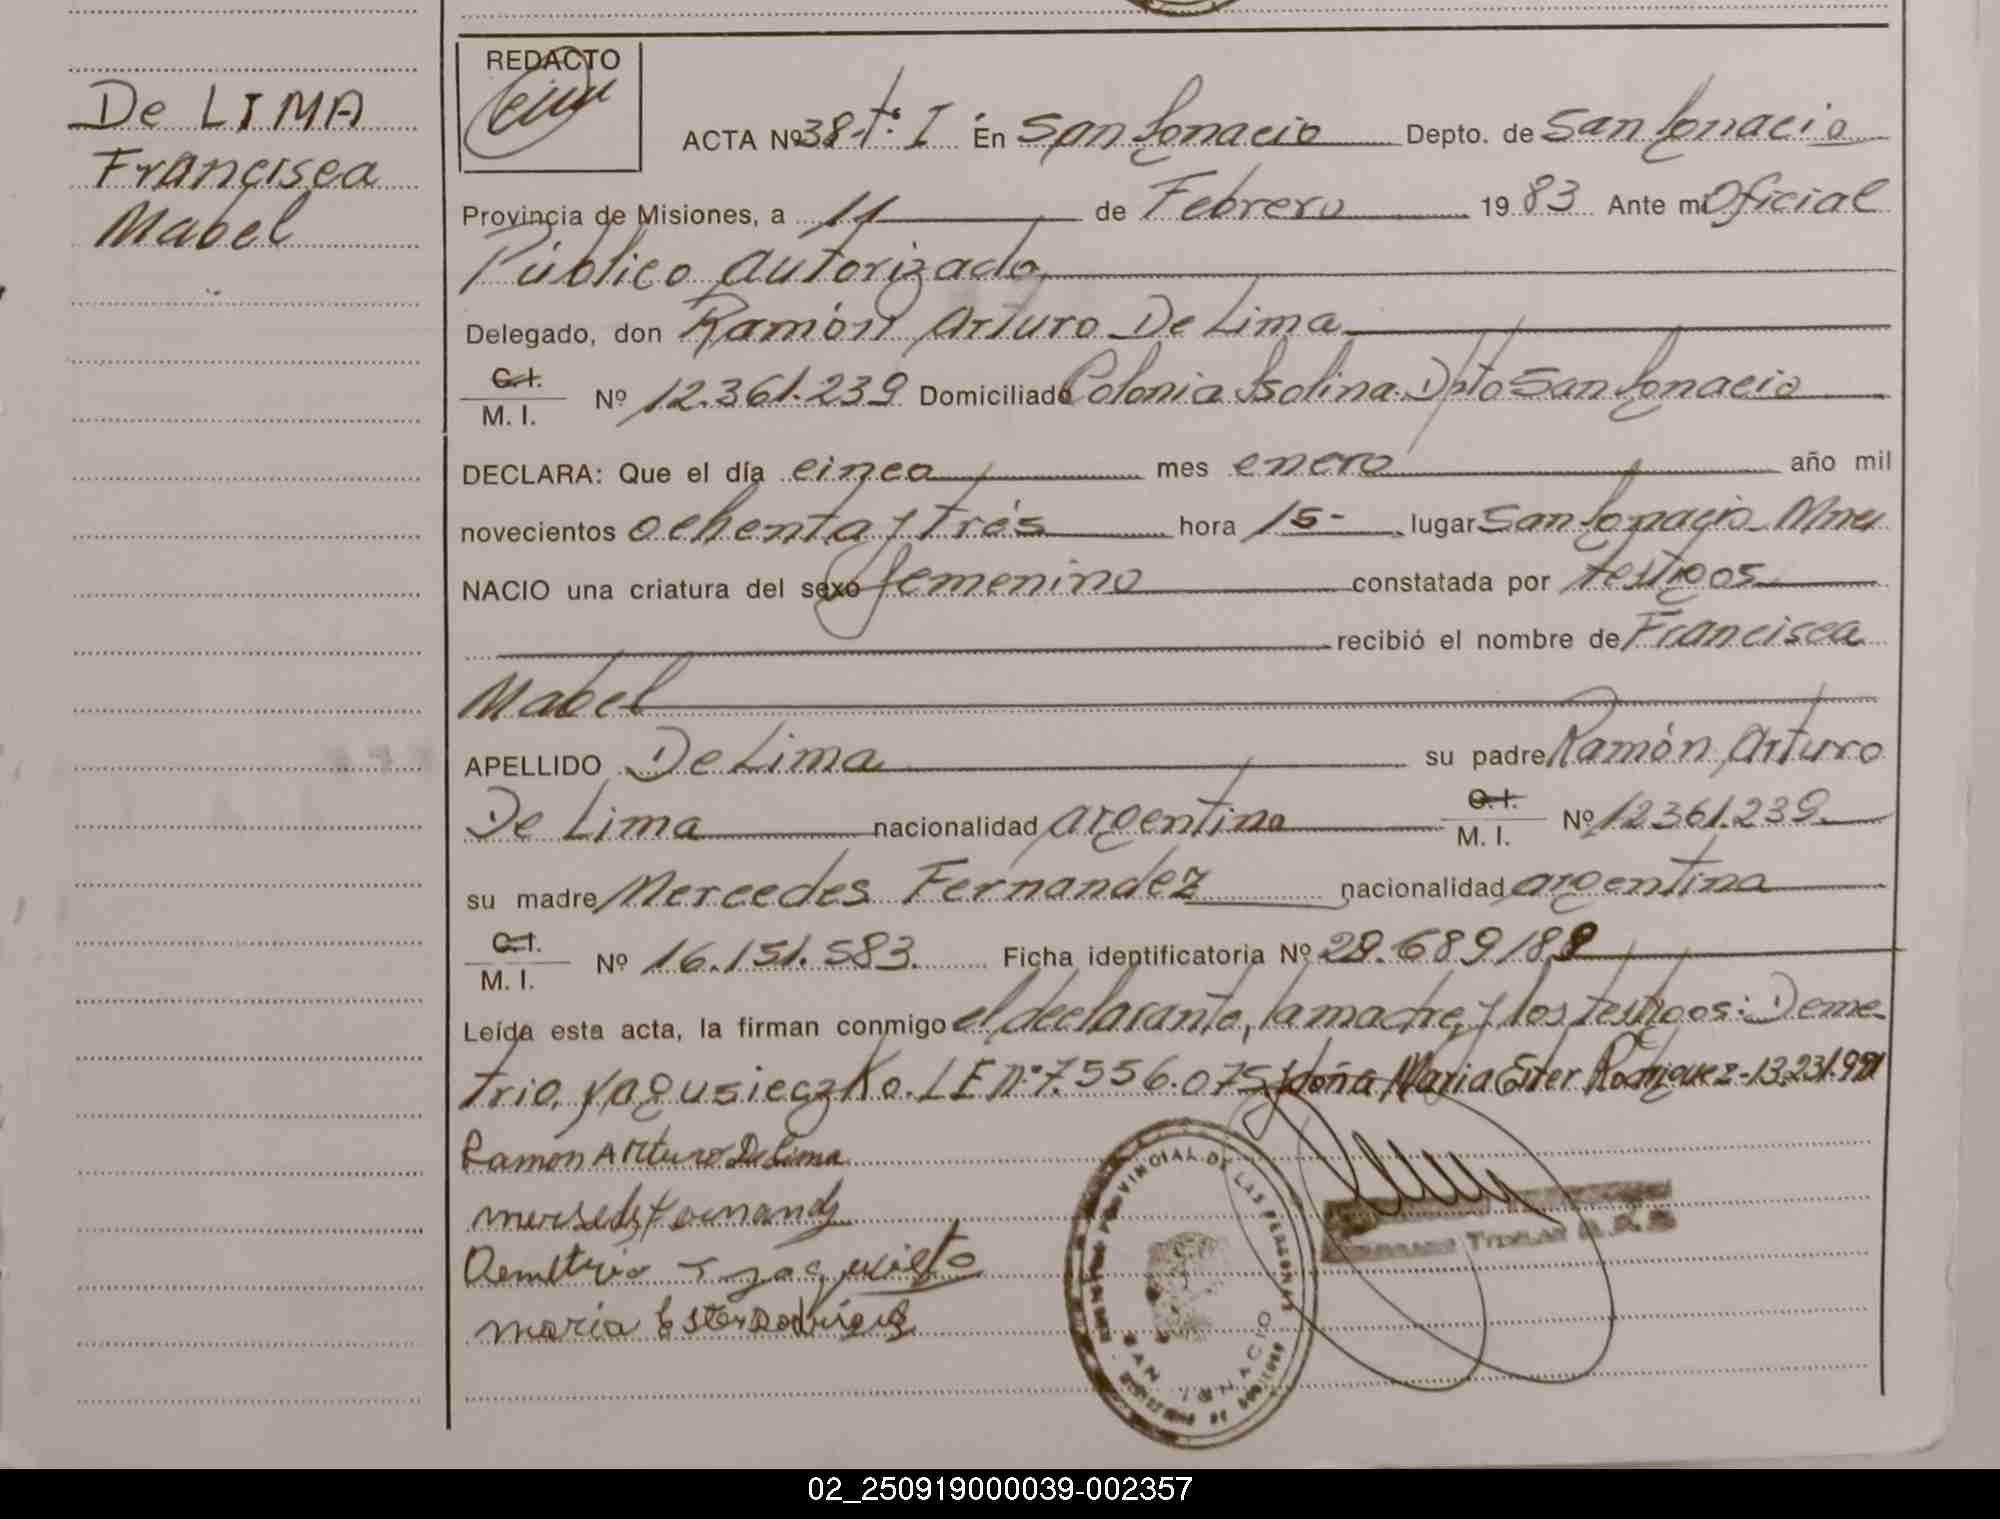 De LIMA
Francisca
Mabel
REDACTO
ACTA Nº 38-tº I En San Ignacio Depto. de San Ignacio
Provincia de Misiones, a 11 de Febrero 19 83 Ante mi Oficial
Público Autorizado
Delegado, don Ramón Arturo De Lima
C.I. M. I. Nº 12.361.239 Domiciliado Colonia Isolina. Dpto San Ignacio
DECLARA: Que el día cinco mes enero año mil
novecientos ochenta y trés hora 15- lugar San Ignacio Mnes
NACIO una criatura del sexo femenino constatada por testigos
recibió el nombre de Francisca
Mabel
APELLIDO De Lima su padre Ramón Arturo
De Lima nacionalidad argentina C.I. M. I. Nº 12361.239
su madre Mercedes Fernandez nacionalidad argentina
C.I. M. I. Nº 16.151.583. Ficha identificatoria Nº 29.689189
Leída esta acta, la firman conmigo el declarante, la madre, y los testigos: Deme-
trio, Yagusieczko. LE nº 7.556.075 y doña Maria Ester Rodriguez-13.231.991
Ramon Arturo De Lima
Demetrio
maria Ester Rodrigues
PROVINCIAL DE LAS PERSONAS
SAN IGNACIO
02_250919000039-002357